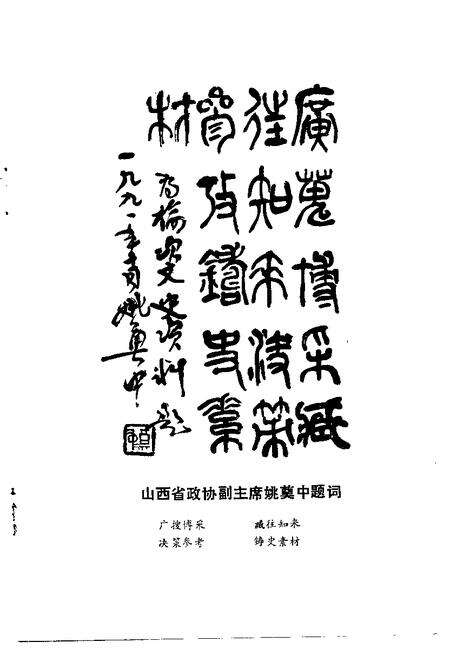 廣蒐博采藏
往知來決策
參攷鑄史素
材
为榆次文史资料题
一九九一年 姚奠中
山西省政协副主席姚奠中题词
广搜博采 藏往知来
决策参考 铸史素材